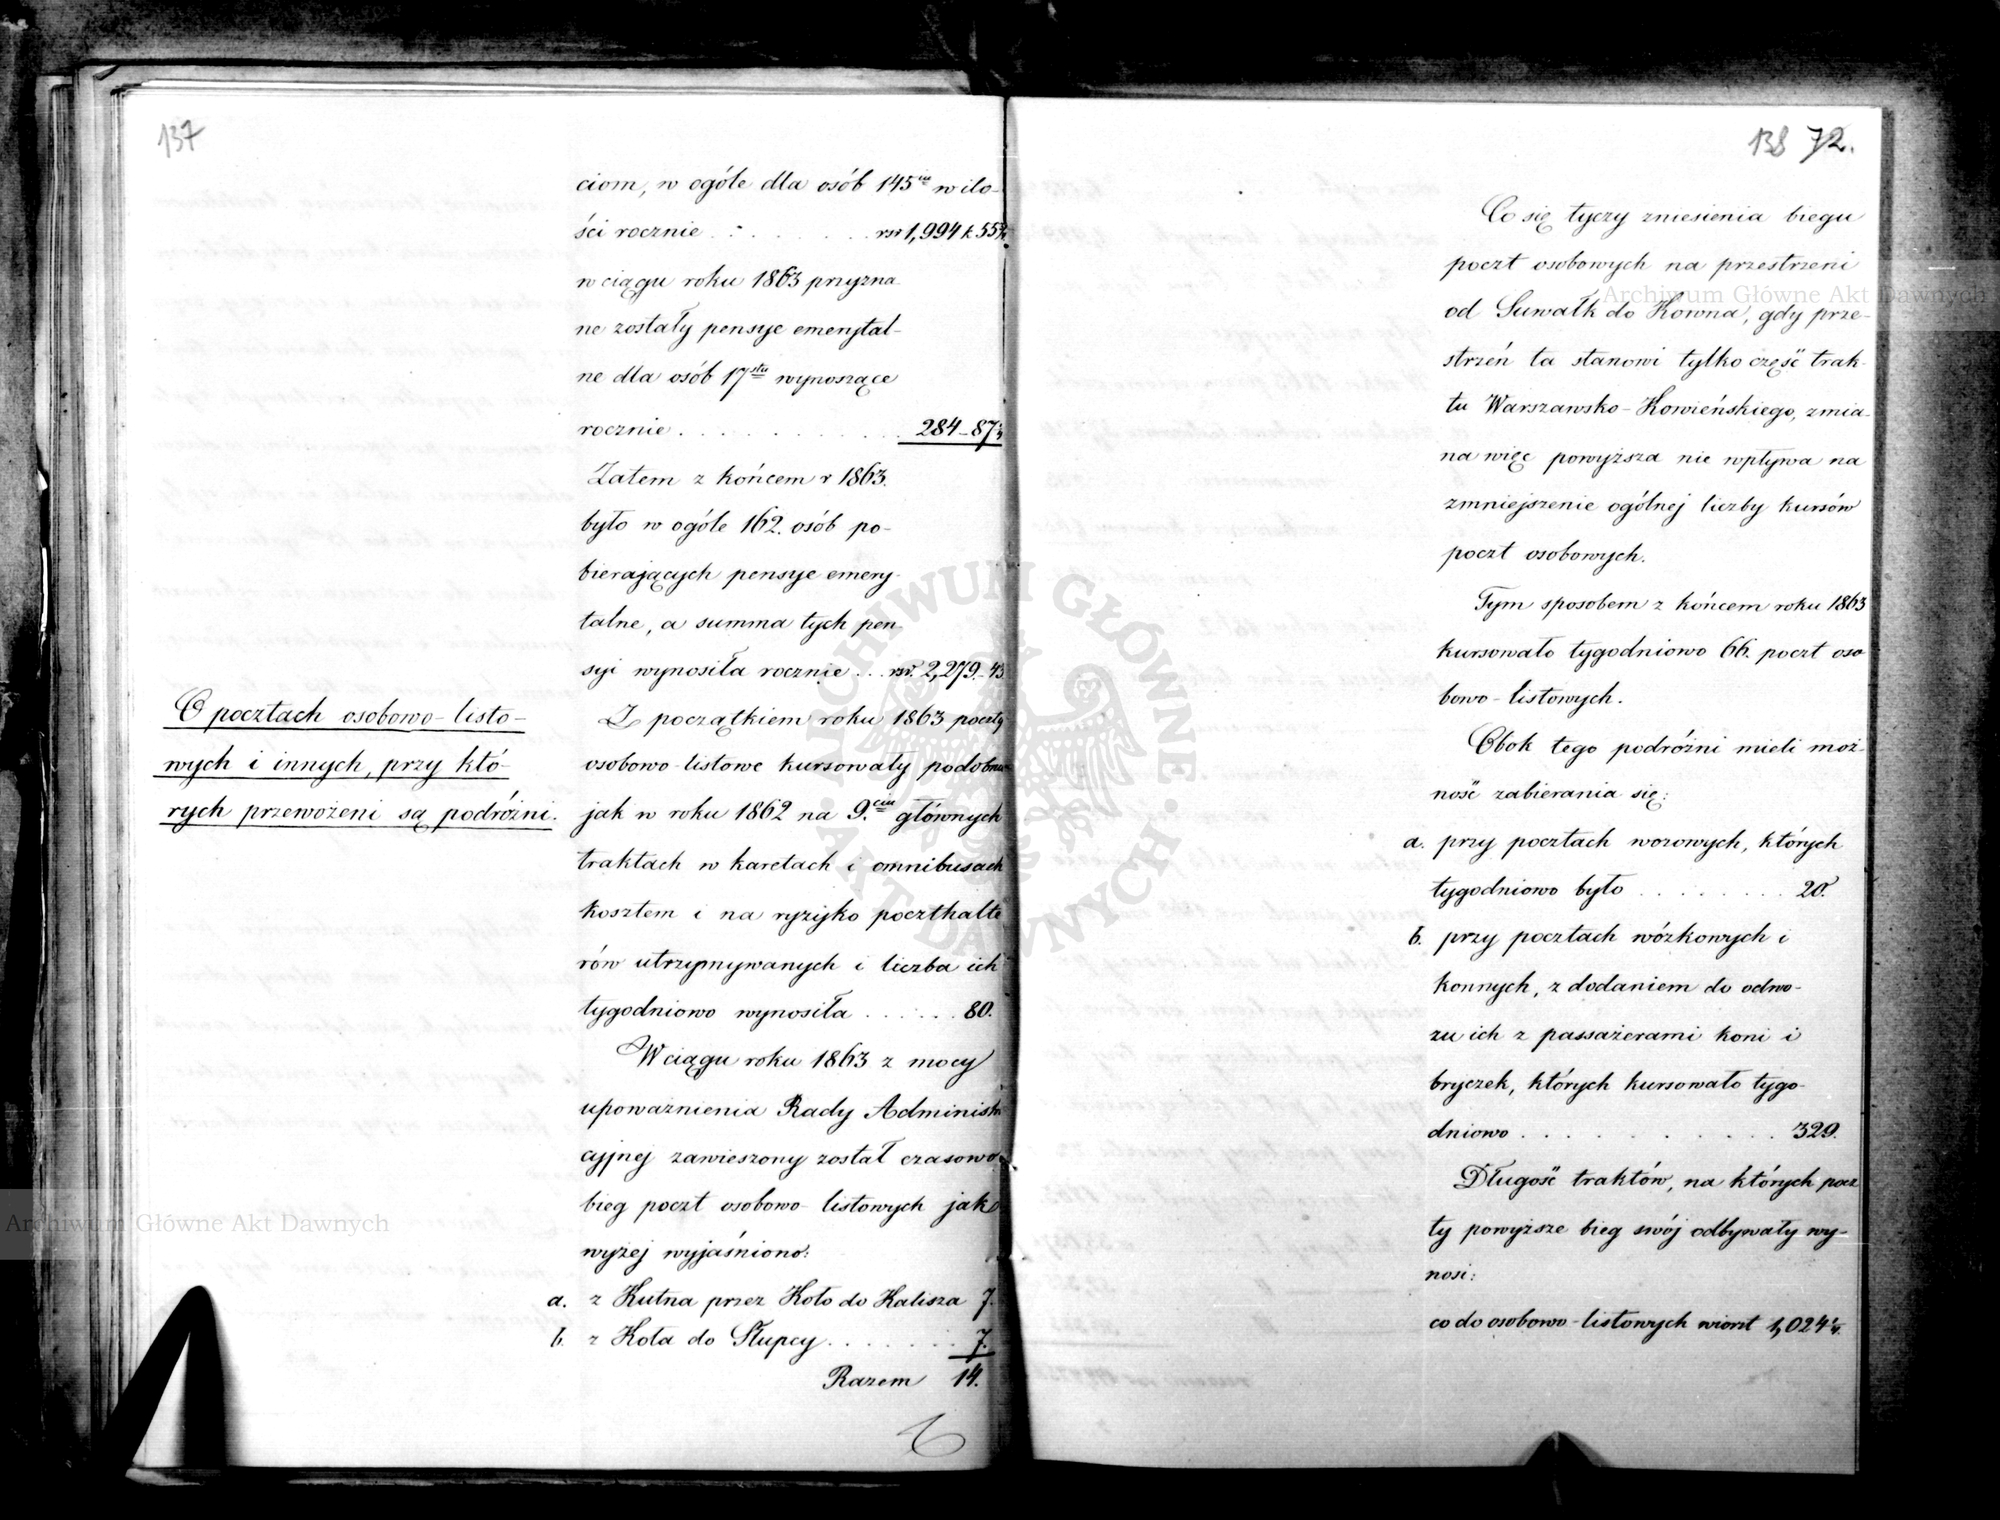 137
ciom, w ogóle dla osób 145ciu w ilo-
ści rocznie . . . . . . . rsr 1,994 k 55½
w ciągu roku 1863 przyzna-
ne zostały pensyje emerytal-
ne dla osób 17stu wynoszące
rocznie . . . . . . . . . . . 284 - 87½
Zatem z końcem r 1863.
było w ogóle 162. osób po-
bierających pensyje emery-
talne, a summa tych pen-
syi wynosiła rocznie . . . rsr. 2,279.- 43
O pocztach osobowo-listo-
wych i innych, przy któ-
rych przewożeni są podróżni.
Z początkiem roku 1863 poczty
osobowo-listowe kursowały podobnie
jak w roku 1862 na 9.ciu głównych
traktach w karetach i omnibusach
kosztem i na ryzyko poczthalte
rów utrzymywanych i liczba ich
tygodniowo wynosiła . . . . . . 80.
W ciągu roku 1863 z mocy
upoważnienia Rady Administra
cyjnej zawieszony został czasowo
bieg poczt osobowo-listowych jako
wyżej wyjaśniono:
a. z Kutna przez Koło do Kalisza 7.
b. z Koła do Słupcy . . . . . . . 7.
Razem 14.
138 72.
Co się tyczy zniesienia biegu
poczt osobowych na przestrzeni
od Suwałk do Kowna, gdy prze-
strzeń ta stanowi tylko część trak-
tu Warszawsko-Kowieńskiego, zmia-
na więc powyższa nie wpływa na
zmniejszenie ogólnej liczby kursów
poczt osobowych.
Tym sposobem z końcem roku 1863
kursowało tygodniowo 66. poczt oso
bowo-listowych.
Obok tego podróżni mieli moż-
ność zabierania się:
a. przy pocztach worowych, których
tygodniowo było . . . . . . . . 20.
b. przy pocztach wózkowych i
konnych, z dodaniem do odwo-
zu ich z passażerami koni i
bryczek, których kursowało tygo-
dniowo . . . . . . . . . . . 329.
Długość traktów, na których pocz
ty powyższe bieg swój odbywały wy-
nosi:
co do osobowo-listowych wiorst 1,024¼.
Archiwum Główne Akt Dawnych
Archiwum Główne Akt Dawnych
ARCHIWUM GŁÓWNE AKT DAWNYCH